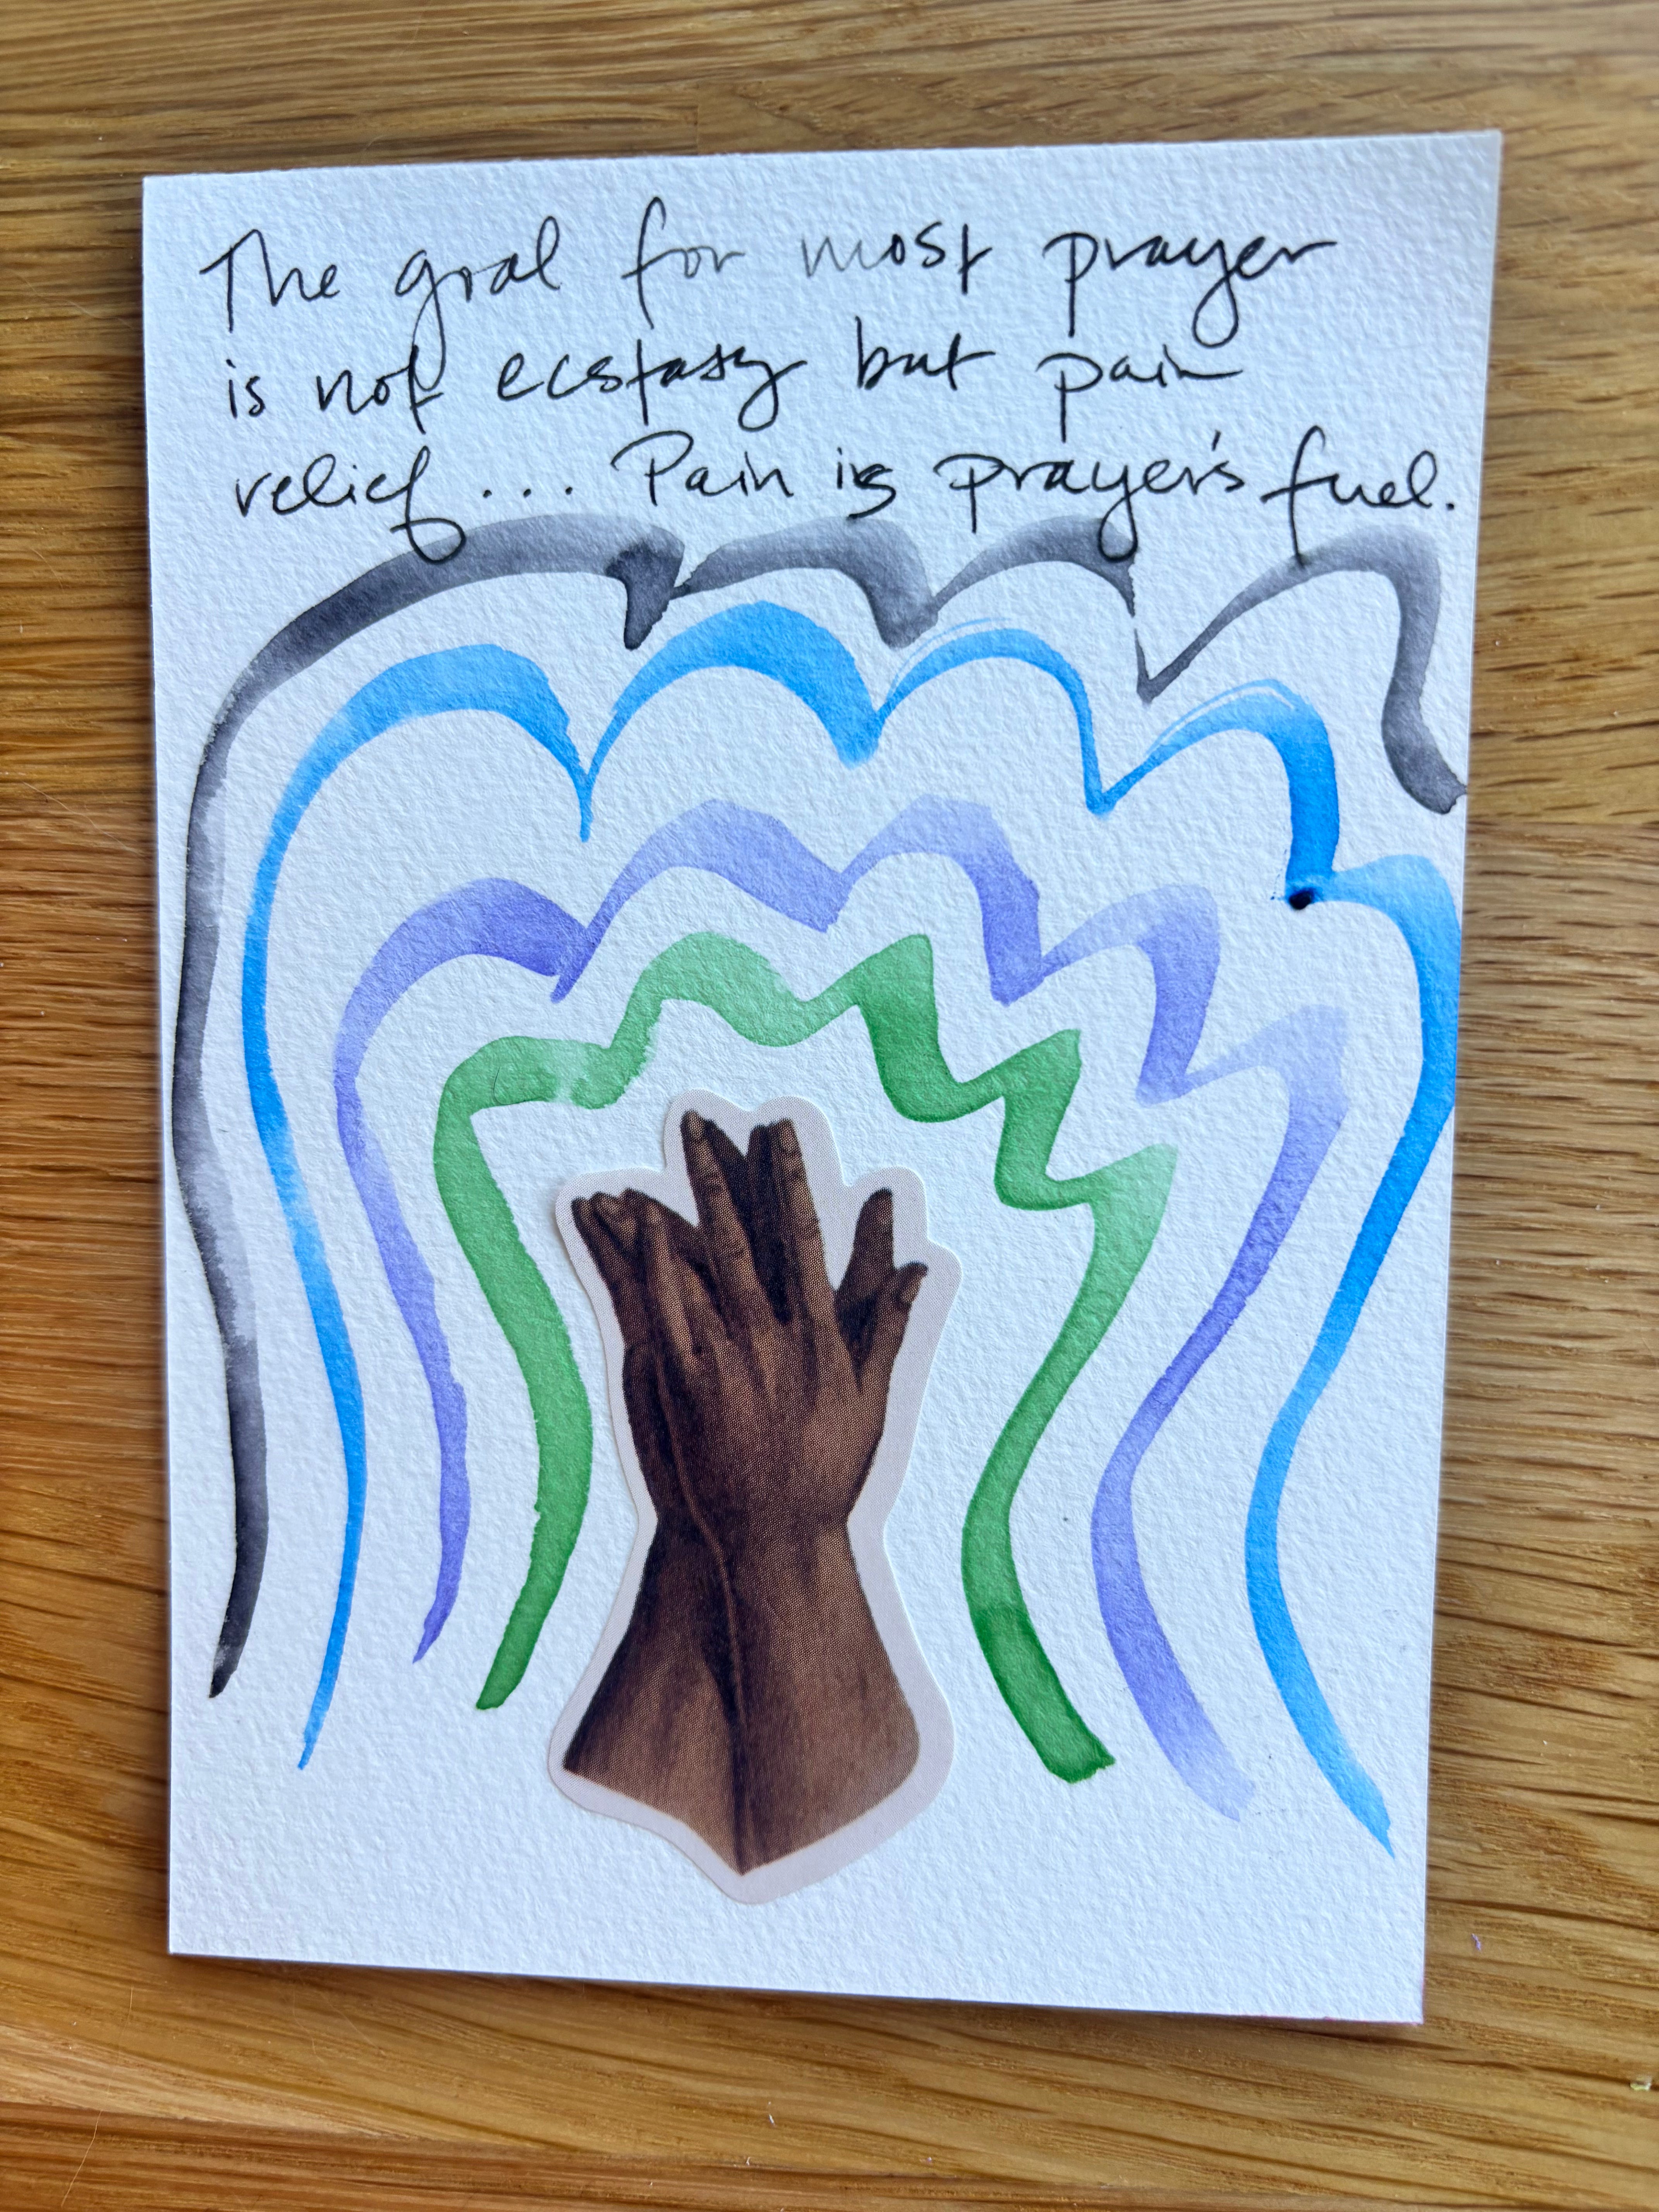 The goal for most prayer
is not ecstasy but pain
relief... Pain is prayer's fuel.